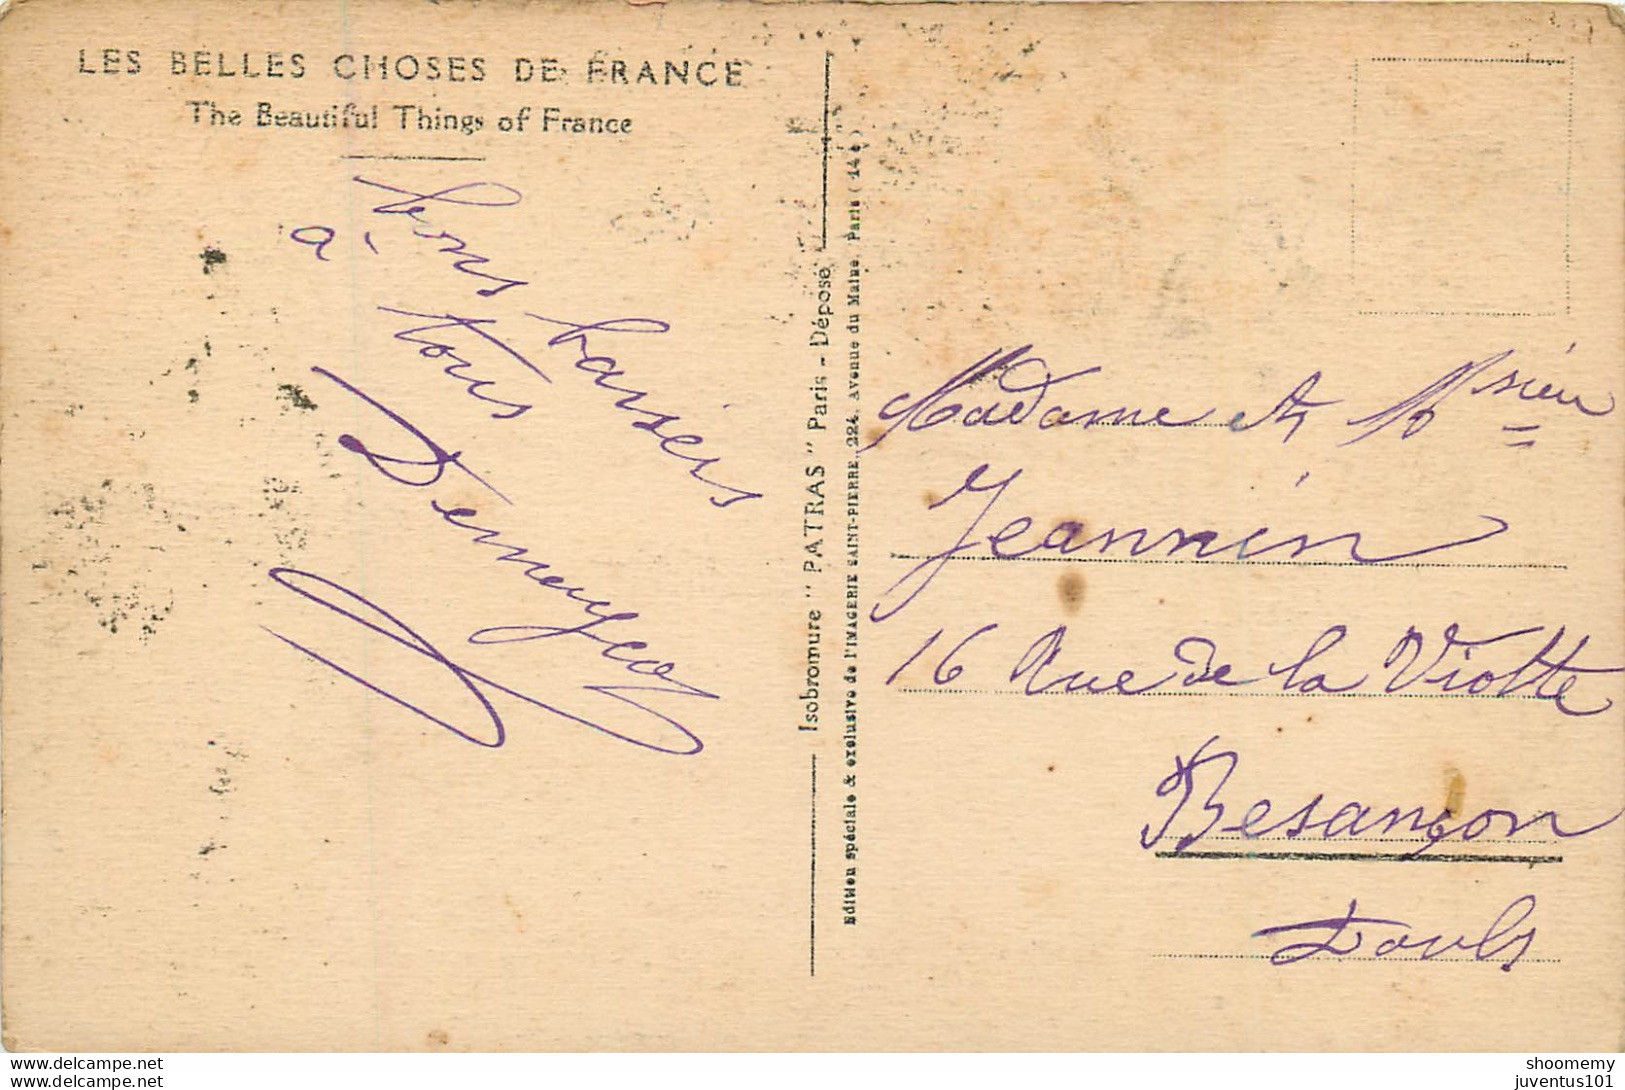 LES BELLES CHOSES DE FRANCE
The Beautiful Things of France
bons baisers
à tous
Isobromure " PATRAS " Paris - Déposé
Edition spéciale & exclusive de l'IMAGERIE SAINT-PIERRE, 224, Avenue du Maine, Paris (14e)
Madame et Monsieur
Jeannin
16 Rue de la Viotte
Besançon
Doubs
www.delcampe.net
shoomemy
juventus101